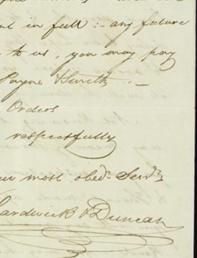 in full :- any future
to us, you may pay
Payne Hewitt
Orders
respectfully
most obedt Servts
Hardwick & Duncan